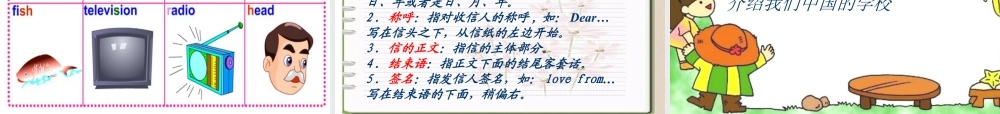 fish television radio head
日、年或者是日、月、年。
2. 称呼：指对收信人的称呼，如： Dear...
写在信头之下，从信纸的左边开始。
3. 信的正文：指信的主体部分。
4. 结束语：指正文下面的结尾客套话。
5. 签名：指发信人签名，如： love from...
写在结束语的下面，稍偏右。
介绍我们中国的学校